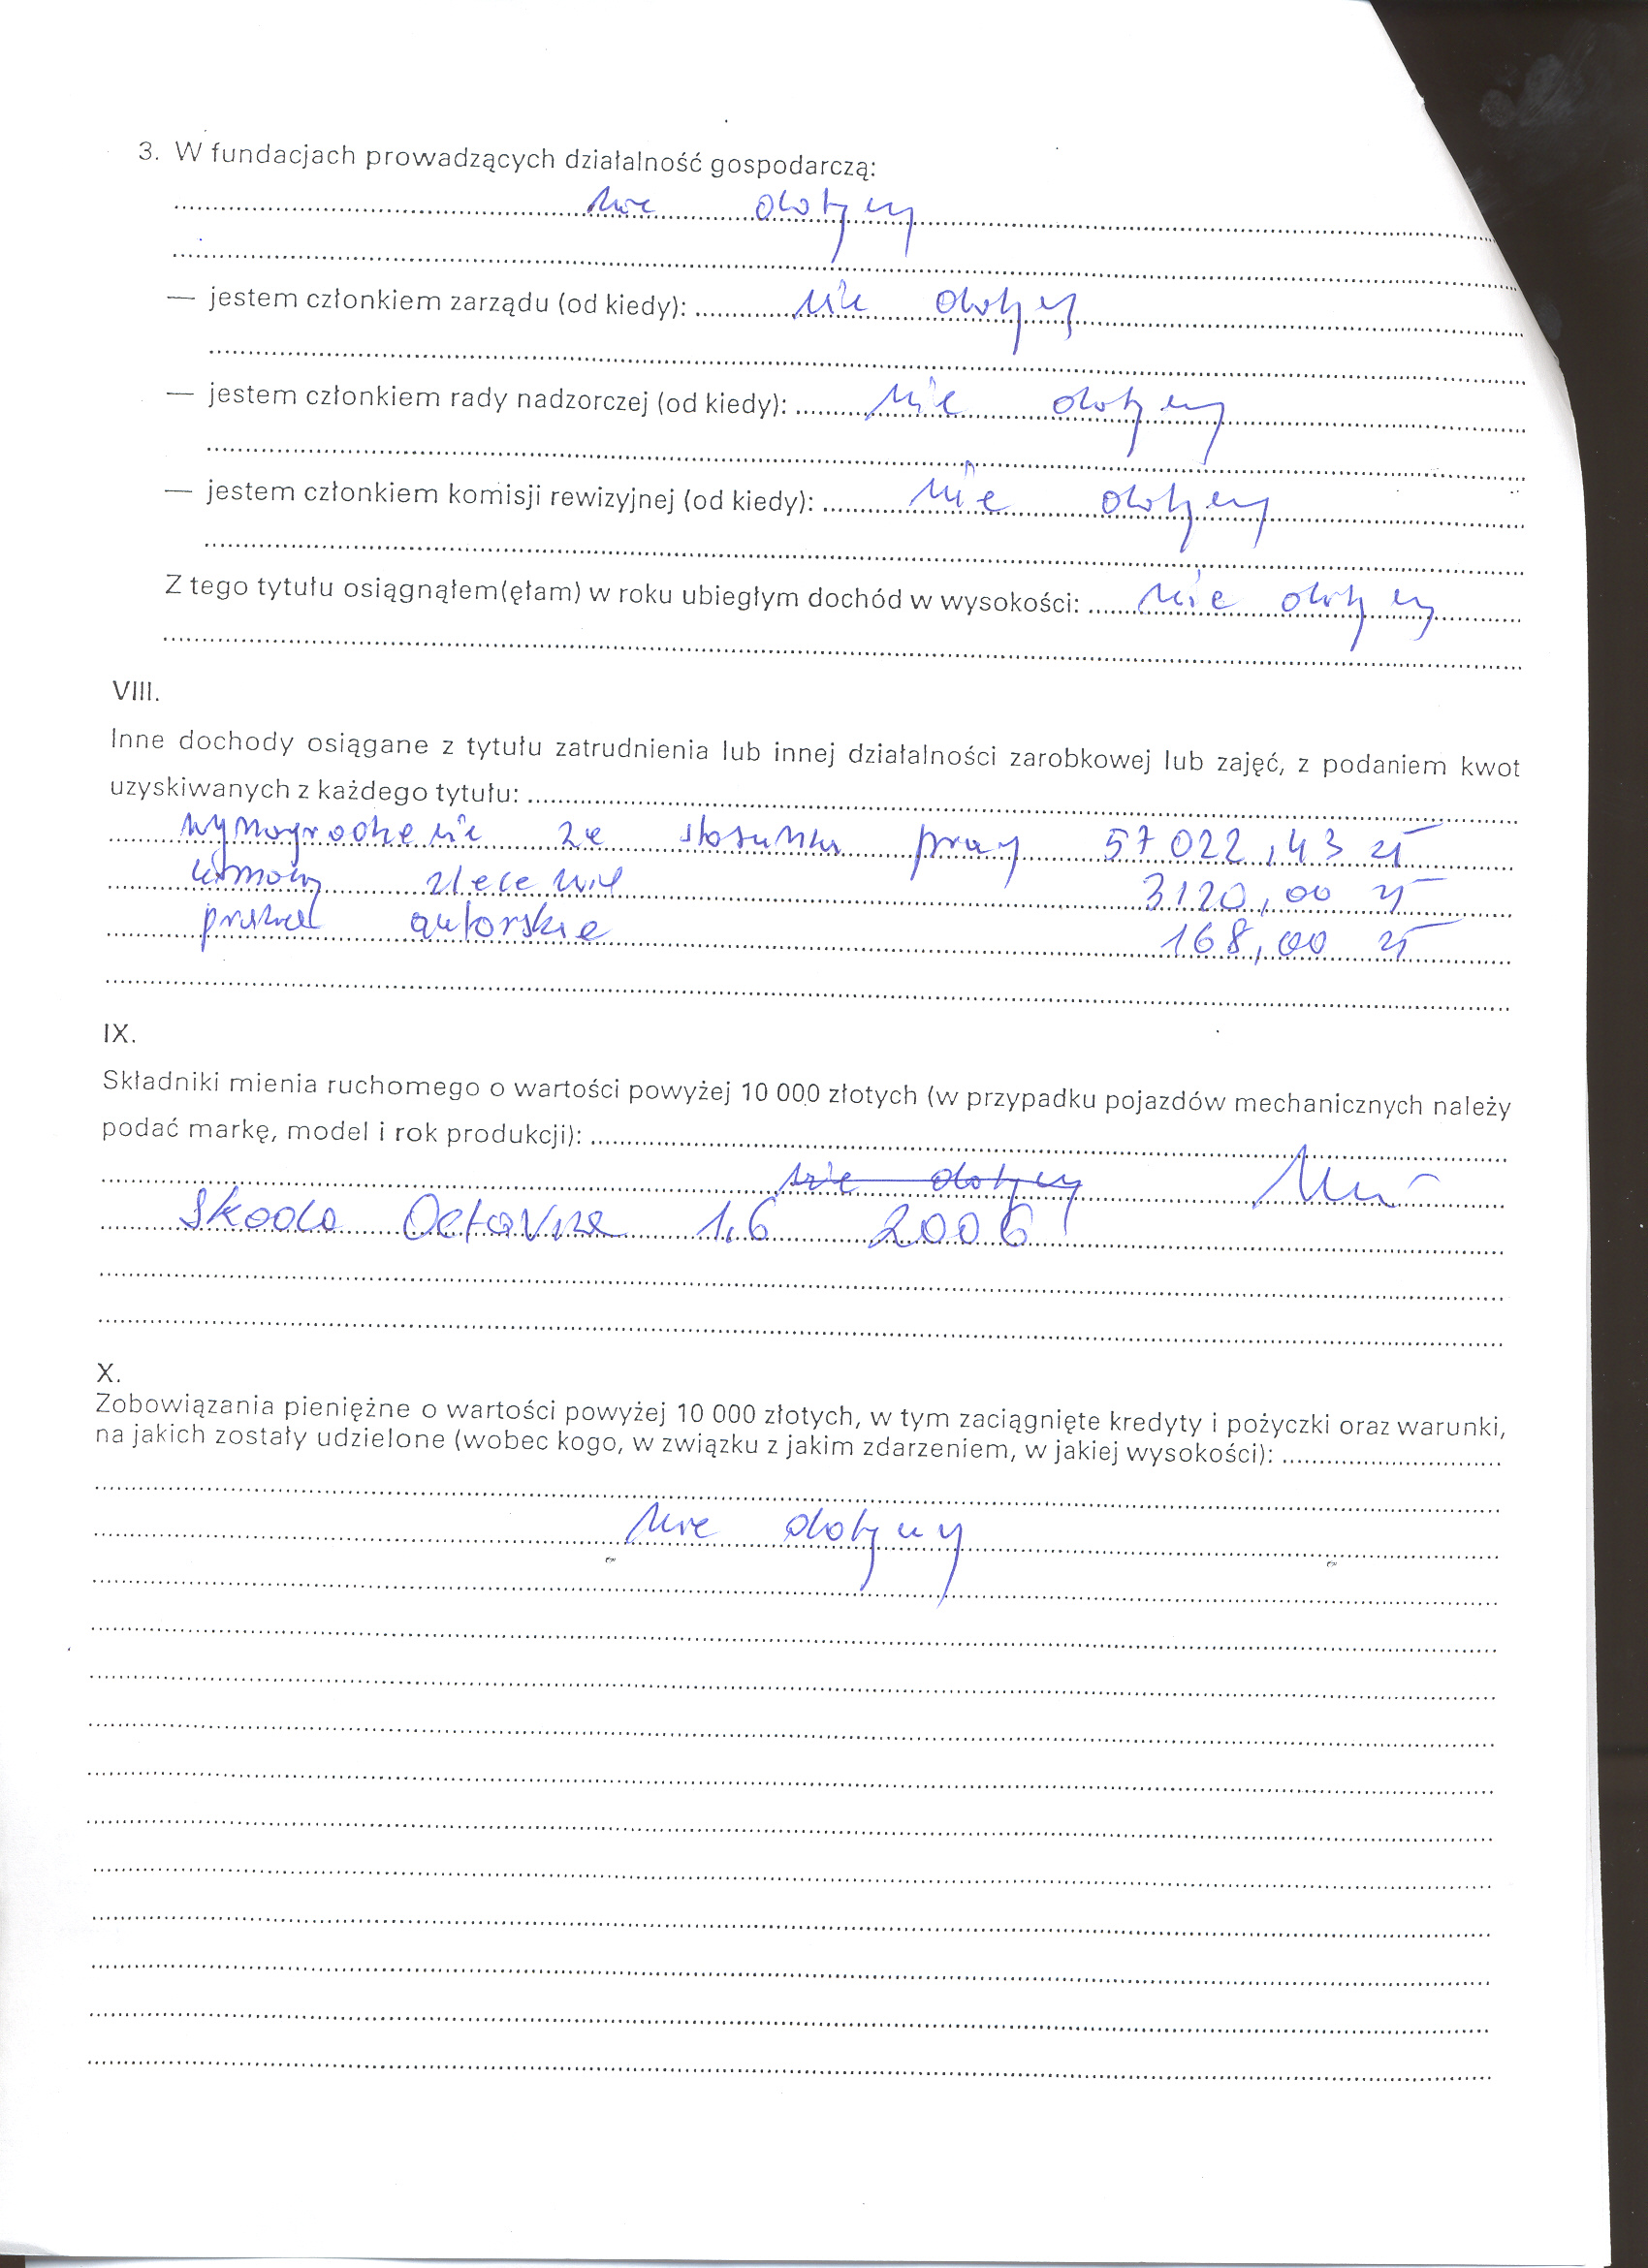 3. W fundacjach prowadzących działalność gospodarczą:
nie dotyczy
— jestem członkiem zarządu (od kiedy): nie dotyczy
— jestem członkiem rady nadzorczej (od kiedy): nie dotyczy
— jestem członkiem komisji rewizyjnej (od kiedy): nie dotyczy
Z tego tytułu osiągnąłem(ęłam) w roku ubiegłym dochód w wysokości: nie dotyczy
VIII.
Inne dochody osiągane z tytułu zatrudnienia lub innej działalności zarobkowej lub zajęć, z podaniem kwot
uzyskiwanych z każdego tytułu:
wynagrodzenie ze stosunku pracy 57 022,43 zł
umowy zlecenie 3120,00 zł
prawa autorskie 168,00 zł
IX.
Składniki mienia ruchomego o wartości powyżej 10 000 złotych (w przypadku pojazdów mechanicznych należy
podać markę, model i rok produkcji):
nie dotyczy
Skoda Octavia 1,6 2006
X.
Zobowiązania pieniężne o wartości powyżej 10 000 złotych, w tym zaciągnięte kredyty i pożyczki oraz warunki,
na jakich zostały udzielone (wobec kogo, w związku z jakim zdarzeniem, w jakiej wysokości):
nie dotyczy